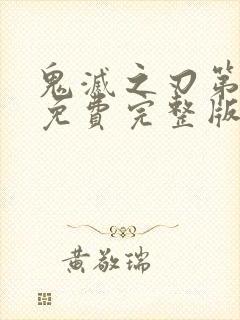 鬼滅之刃第
免費完整版
黃敬瑞